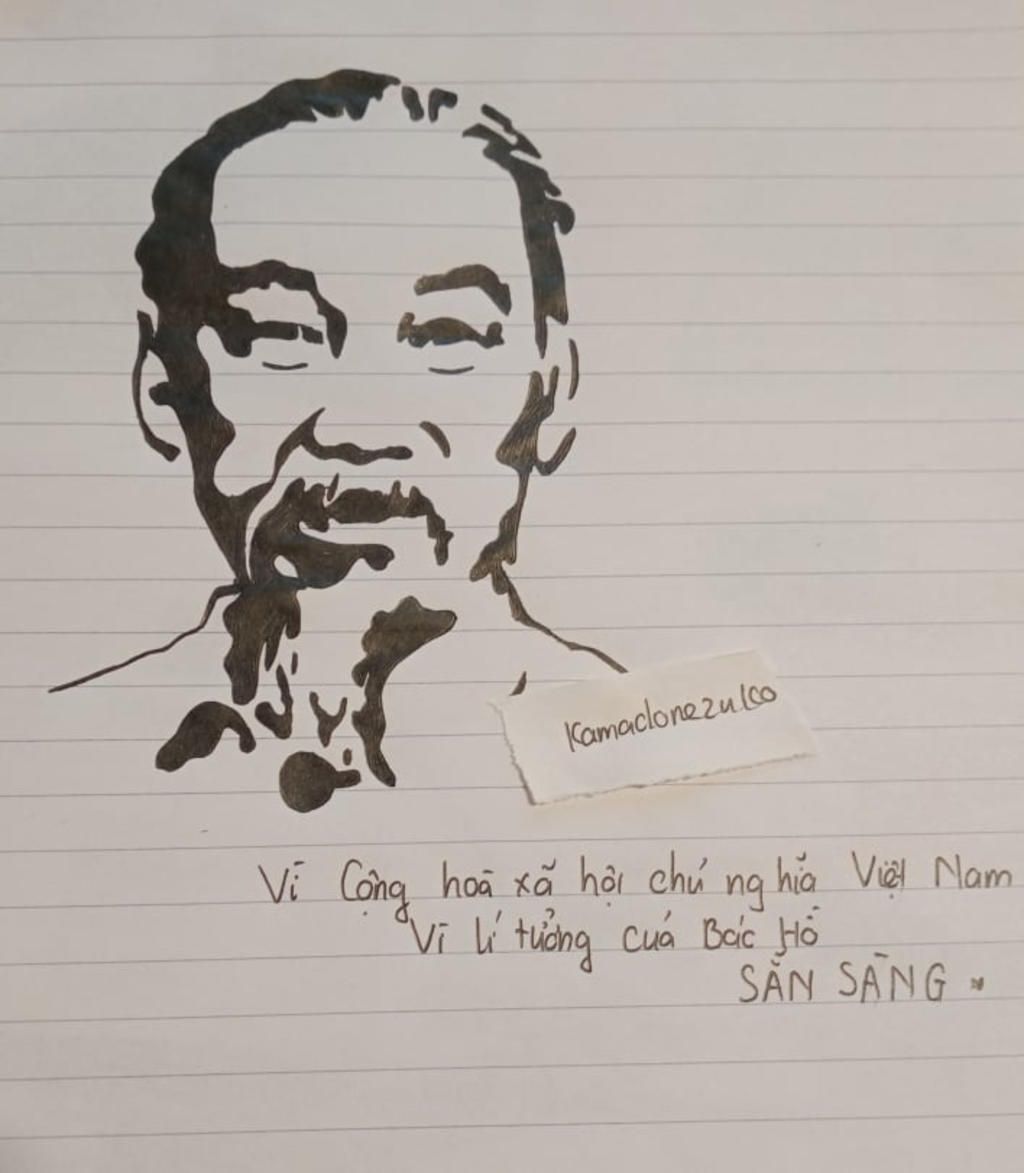 Kamaclonezulco
Vì Cộng hoà xã hội chủ nghĩa Việt Nam
Vì lí tưởng của Bác Hồ
SẴN SÀNG